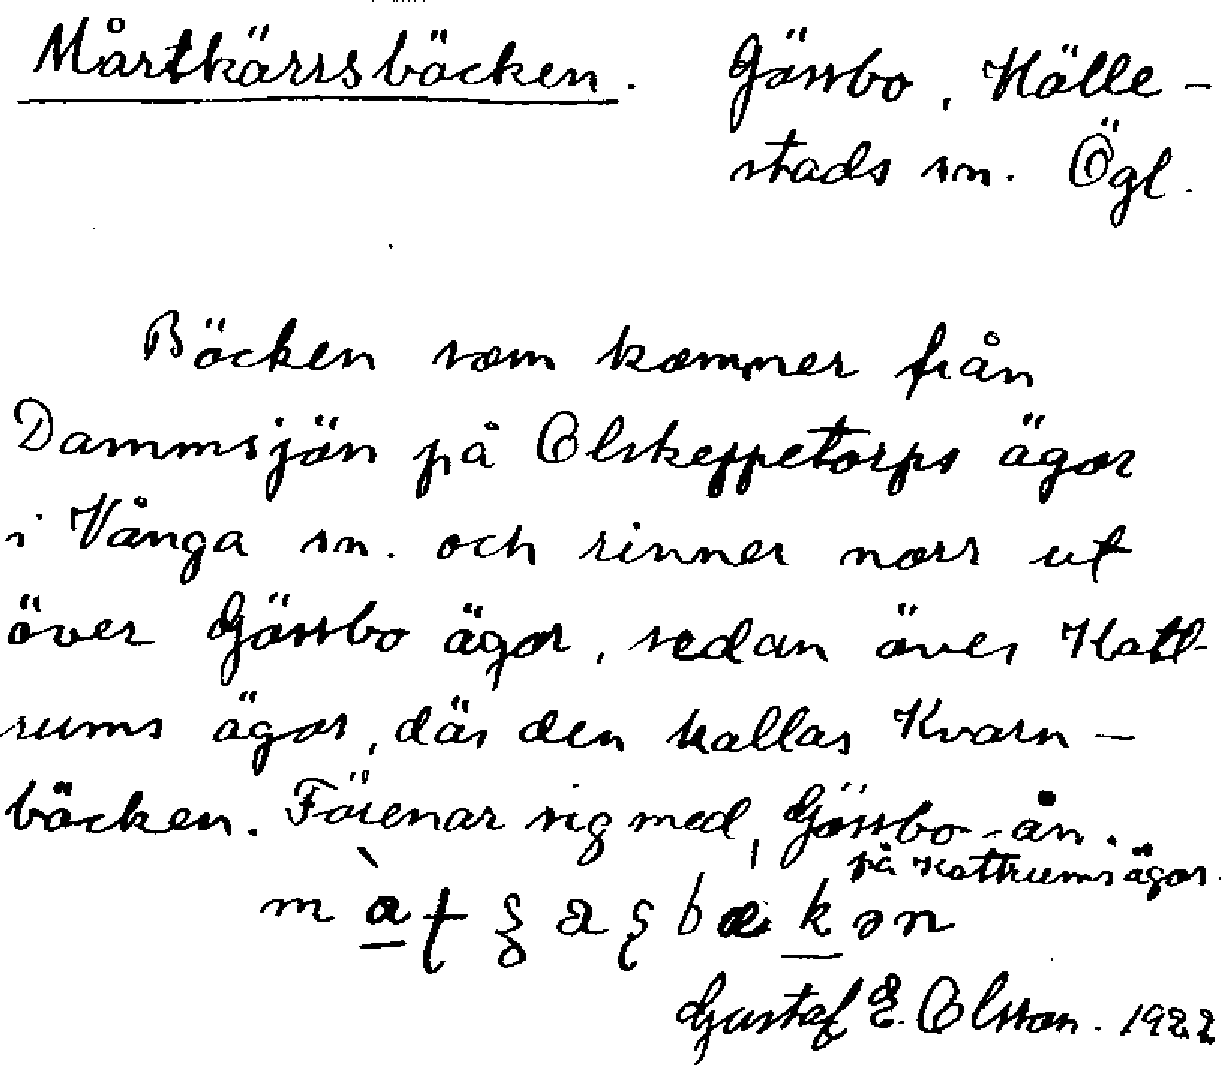 Mårtkärrsbäcken. Gässbo, Hälle-
stads sn. Ögl.
Bäcken som kommer från
Dammsjön på Olskeppetorps ägor
i Vånga sn. och rinner norr ut
över Gässbo ägor, sedan över Katt-
rums ägor, där den kallas Kvarn-
bäcken. Förenar sig med Gässbo-ån
på Kattrums ägor.
Gustaf E. Olsson. 1922